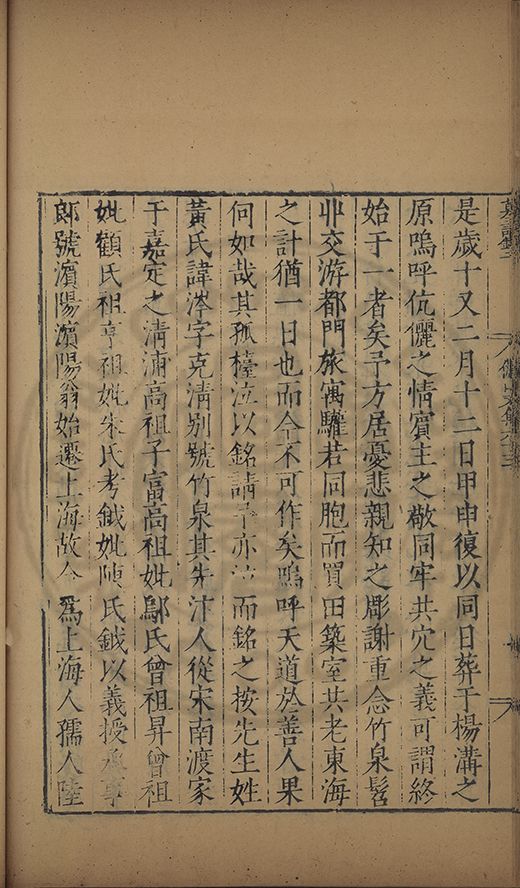 是歲十又二月十二日甲申復以同日葬于楊溝之
原嗚呼伉儷之情賓主之敬同牢共穴之義可謂終
始于一者矣予方居憂悲親知之彫謝重念竹泉髫
丱交游都門旅寓驩若同胞而買田築室共老東海
之計猶一日也而今不可作矣嗚呼天道於善人果
何如哉其孤橦泣以銘請予亦泣而銘之按先生姓
黃氏諱澪字克清别號竹泉其先汴人從宋南渡家
于嘉定之清浦高祖子富高祖妣鄔氏曾祖昇曾祖
妣顧氏祖亨祖妣朱氏考鉞妣陳氏鉞以義授承事
郎號濱陽濱陽翁始遷上海故今爲上海人孺人陸